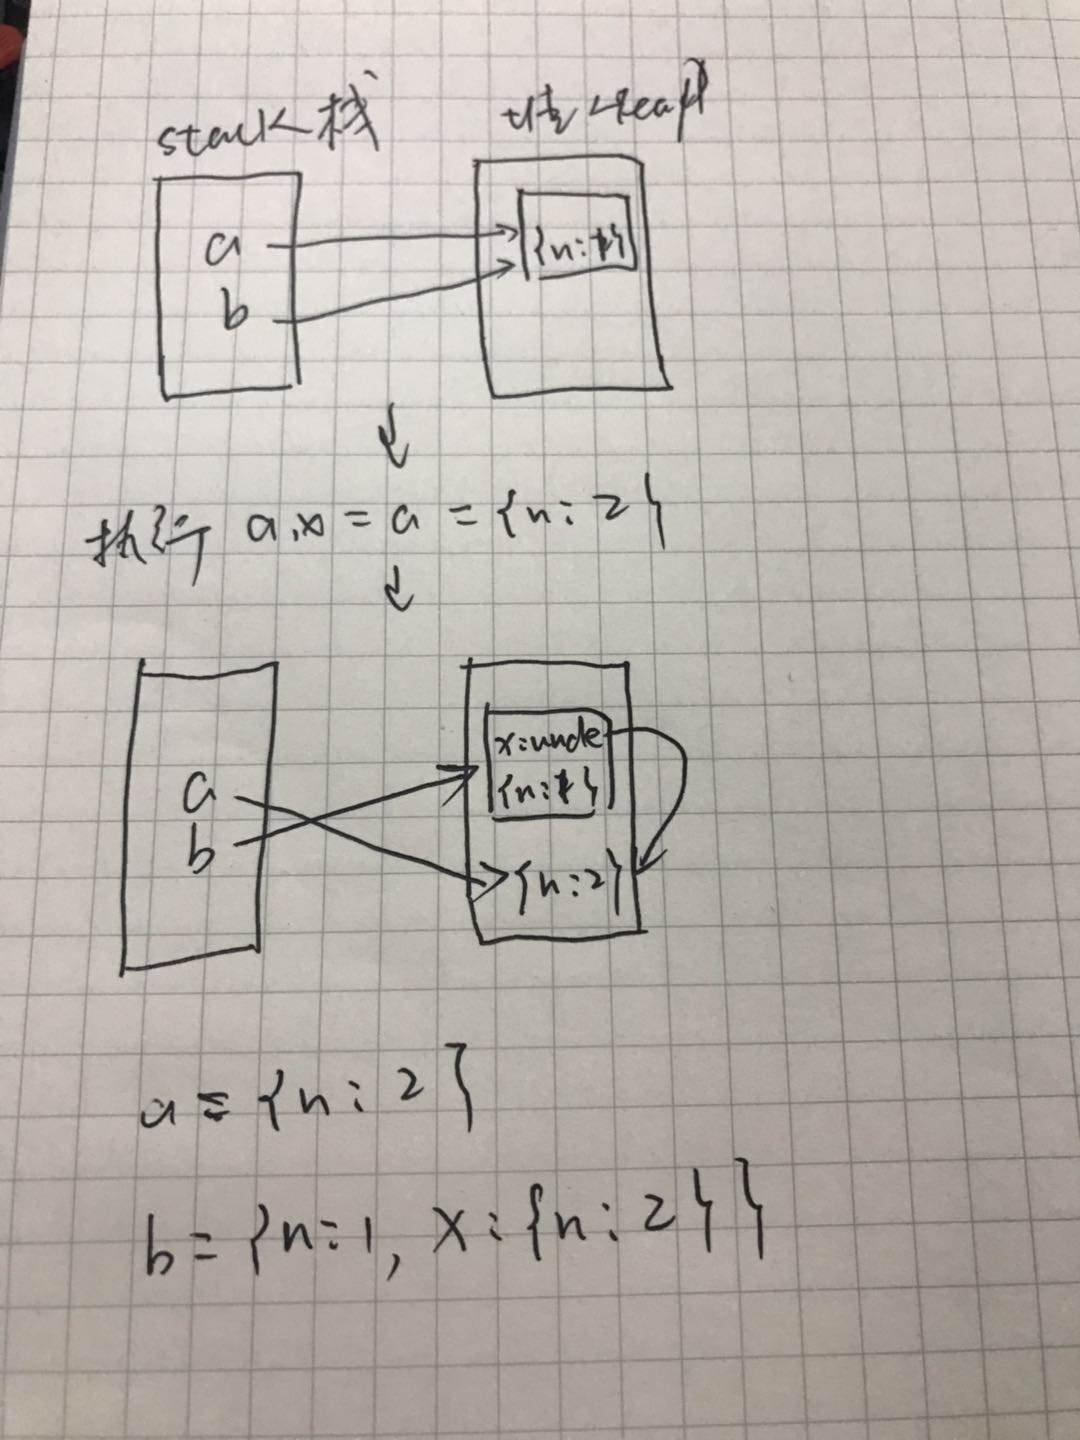 stack 栈
堆 heap
a
{n:1}
b
执行 a.x = a = {n: 2}
x:unde
a
{n:1}
b
{n:2}
a = {n: 2}
b = {n:1, x:{n: 2}}